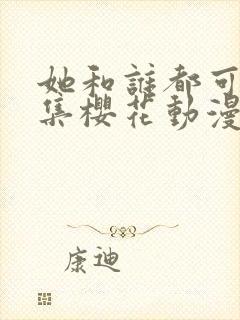 她和誰都可
集櫻花動漫
康迪